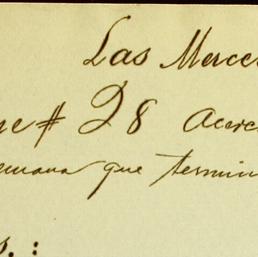 Las Merce
me # 28 Acerc
emana que termin
s. :